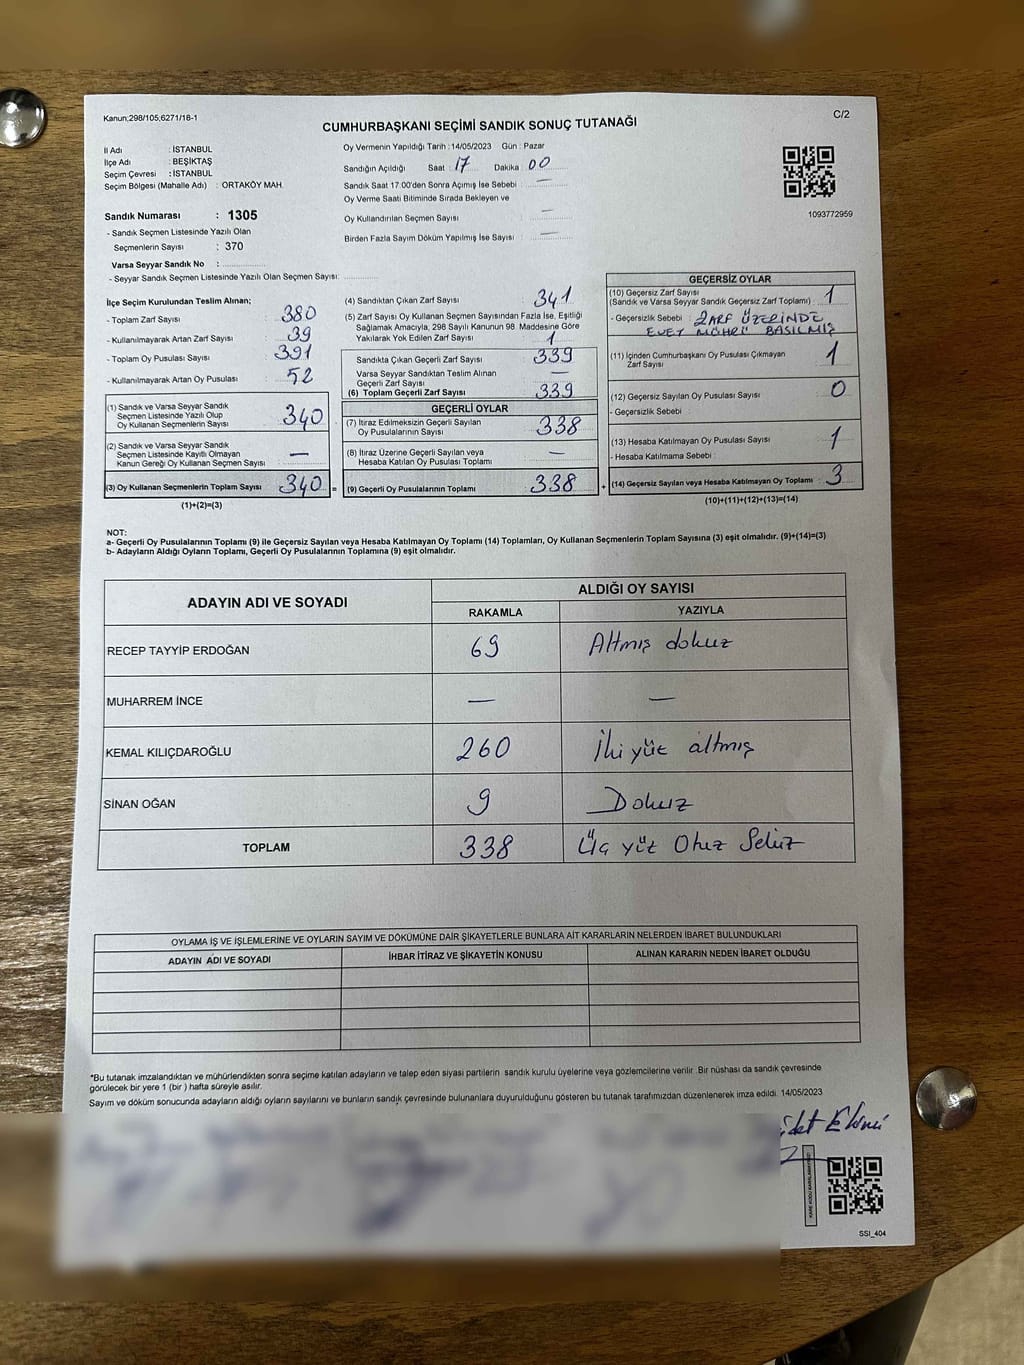 Kanun;298/105;6271/18-1
C/2
CUMHURBAŞKANI SEÇİMİ SANDIK SONUÇ TUTANAĞI
İl Adı : İSTANBUL
İlçe Adı : BEŞİKTAŞ
Seçim Çevresi : İSTANBUL
Seçim Bölgesi (Mahalle Adı) : ORTAKÖY MAH.
Sandık Numarası : 1305
- Sandık Seçmen Listesinde Yazılı Olan
Seçmenlerin Sayısı : 370
Varsa Seyyar Sandık No :
- Seyyar Sandık Seçmen Listesinde Yazılı Olan Seçmen Sayısı:
Oy Vermenin Yapıldığı Tarih :14/05/2023 Gün : Pazar
Sandığın Açıldığı Saat : 17 Dakika : 00
Sandık Saat 17.00'den Sonra Açımış İse Sebebi : —
Oy Verme Saati Bitiminde Sırada Bekleyen ve
Oy Kullandırılan Seçmen Sayısı : —
Birden Fazla Sayım Döküm Yapılmış İse Sayısı : —
1093772959
İlçe Seçim Kurulundan Teslim Alınan;
- Toplam Zarf Sayısı : 380
- Kullanılmayarak Artan Zarf Sayısı : 39
- Toplam Oy Pusulası Sayısı : 391
- Kullanılmayarak Artan Oy Pusulası : 52
(1) Sandık ve Varsa Seyyar Sandık
Seçmen Listesinde Yazılı Olup
Oy Kullanan Seçmenlerin Sayısı : 340
(2) Sandık ve Varsa Seyyar Sandık
Seçmen Listesinde Kayıtlı Olmayan
Kanun Gereği Oy Kullanan Seçmen Sayısı : —
(3) Oy Kullanan Seçmenlerin Toplam Sayısı : 340 =
(1)+(2)=(3)
(4) Sandıktan Çıkan Zarf Sayısı : 341
(5) Zarf Sayısı Oy Kullanan Seçmen Sayısından Fazla İse, Eşitliği
Sağlamak Amacıyla, 298 Sayılı Kanunun 98. Maddesine Göre
Yakılarak Yok Edilen Zarf Sayısı : 1
Sandıkta Çıkan Geçerli Zarf Sayısı : 339
Varsa Seyyar Sandıktan Teslim Alınan
Geçerli Zarf Sayısı : —
(6) Toplam Geçerli Zarf Sayısı : 339
GEÇERLİ OYLAR
(7) İtiraz Edilmeksizin Geçerli Sayılan
Oy Pusulalarının Sayısı : 338
(8) İtiraz Üzerine Geçerli Sayılan veya
Hesaba Katılan Oy Pusulası Toplamı : —
(9) Geçerli Oy Pusulalarının Toplamı : 338 +
GEÇERSİZ OYLAR
(10) Geçersiz Zarf Sayısı
(Sandık ve Varsa Seyyar Sandık Geçersiz Zarf Toplamı) : 1
- Geçersizlik Sebebi : ZARF ÜZERİNDE
EVET MÜHRÜ BASILMIŞ
(11) İçinden Cumhurbaşkanı Oy Pusulası Çıkmayan
Zarf Sayısı : 1
(12) Geçersiz Sayılan Oy Pusulası Sayısı : 0
- Geçersizlik Sebebi :
(13) Hesaba Katılmayan Oy Pusulası Sayısı : 1
- Hesaba Katılmama Sebebi :
(14) Geçersiz Sayılan veya Hesaba Katılmayan Oy Toplamı : 3
(10)+(11)+(12)+(13)=(14)
NOT:
a- Geçerli Oy Pusulalarının Toplamı (9) ile Geçersiz Sayılan veya Hesaba Katılmayan Oy Toplamı (14) Toplamları, Oy Kullanan Seçmenlerin Toplam Sayısına (3) eşit olmalıdır. (9)+(14)=(3)
b- Adayların Aldığı Oyların Toplamı, Geçerli Oy Pusulalarının Toplamına (9) eşit olmalıdır.
ADAYIN ADI VE SOYADI
ALDIĞI OY SAYISI
RAKAMLA YAZIYLA
RECEP TAYYİP ERDOĞAN 69 Altmış dokuz
MUHARREM İNCE — —
KEMAL KILIÇDAROĞLU 260 İki yüz altmış
SİNAN OĞAN 9 Dokuz
TOPLAM 338 Üç yüz Otuz Sekiz
OYLAMA İŞ VE İŞLEMLERİNE VE OYLARIN SAYIM VE DÖKÜMÜNE DAİR ŞİKAYETLERLE BUNLARA AİT KARARLARIN NELERDEN İBARET BULUNDUKLARI
ADAYIN ADI VE SOYADI İHBAR İTİRAZ VE ŞİKAYETİN KONUSU ALINAN KARARIN NEDEN İBARET OLDUĞU
*Bu tutanak imzalandıktan ve mühürlendikten sonra seçime katılan adayların ve talep eden siyasi partilerin sandık kurulu üyelerine veya gözlemcilerine verilir. Bir nüshası da sandık çevresinde
görülecek bir yere 1 (bir) hafta süreyle asılır.
Sayım ve döküm sonucunda adayların aldığı oyların sayılarını ve bunların sandık çevresinde bulunanlara duyurulduğunu gösteren bu tutanak tarafımızdan düzenlenerek imza edildi. 14/05/2023
SSI_404